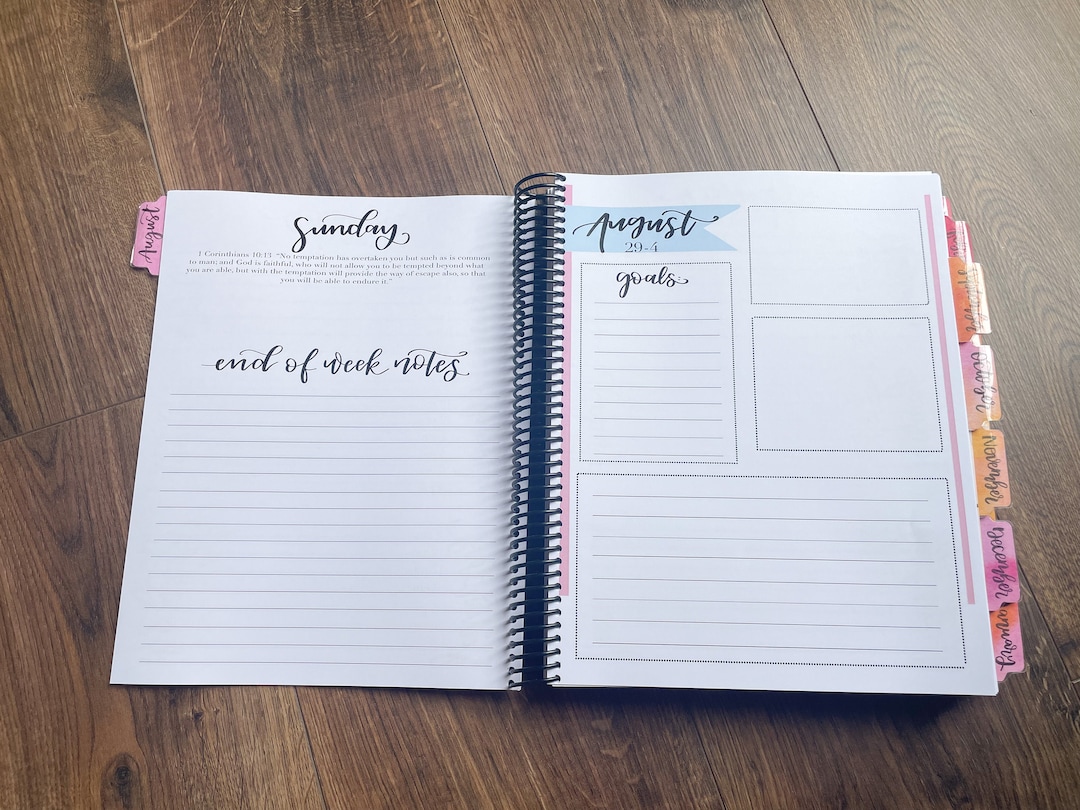 August
Sunday
1 Corinthians 10:13 "No temptation has overtaken you but such as is common
to man; and God is faithful, who will not allow you to be tempted beyond what
you are able, but with the temptation will provide the way of escape also, so that
you will be able to endure it."
end of week notes
August
29-4
goals
October
November
December
January